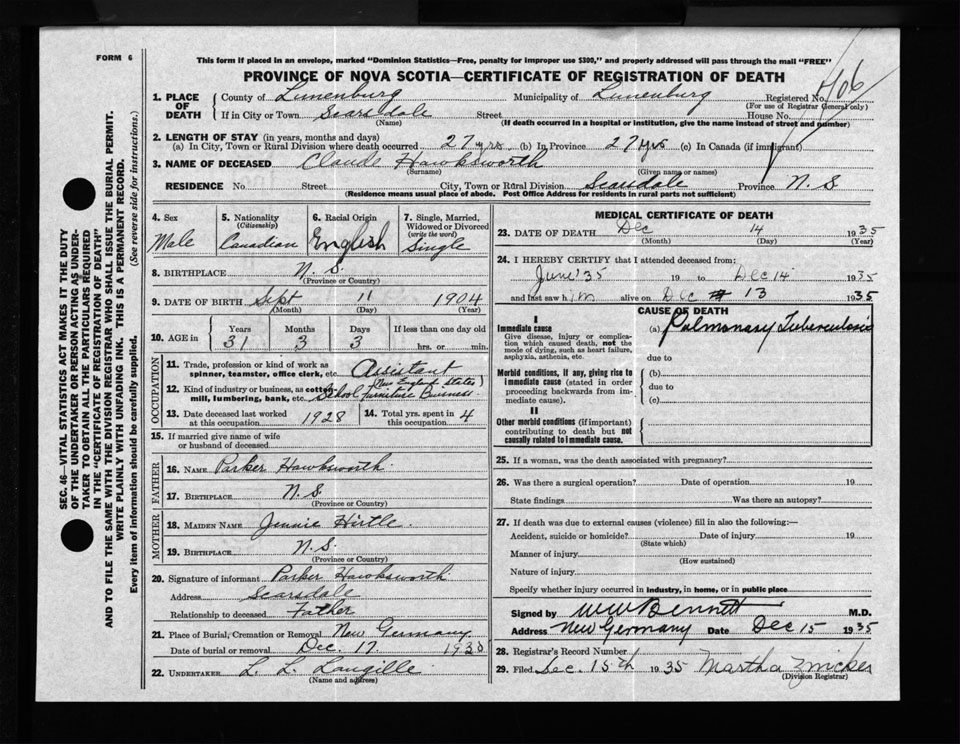 FORM 6
This form if placed in an envelope, marked "Dominion Statistics—Free, penalty for improper use $300," and properly addressed will pass through the mail "FREE"
PROVINCE OF NOVA SCOTIA—CERTIFICATE OF REGISTRATION OF DEATH
406
1. PLACE OF DEATH
County of Lunenburg Municipality of Lunenburg Registered No.
(For use of Registrar General only)
If in City or Town Scarsdale Street House No.
(Name) (If death occurred in a hospital or institution, give the name instead of street and number)
2. LENGTH OF STAY (in years, months and days)
(a) In City, Town or Rural Division where death occurred 27 yrs. (b) In Province 27 yrs (c) In Canada (if immigrant)
3. NAME OF DECEASED Claude Hawksworth
(Surname) (Given name or names)
RESIDENCE No. Street City, Town or Rural Division Scarsdale Province N. S.
(Residence means usual place of abode. Post Office Address for residents in rural parts not sufficient)
4. Sex Male
5. Nationality (Citizenship) Canadian
6. Racial Origin English
7. Single, Married, Widowed or Divorced (write the word) Single
8. BIRTHPLACE N. S.
(Province or Country)
9. DATE OF BIRTH Sept 11 1904
(Month) (Day) (Year)
10. AGE Years 31 Months 3 Days 3 If less than one day old hrs. or min.
OCCUPATION
11. Trade, profession or kind of work as spinner, teamster, office clerk, etc. Assistant
12. Kind of industry or business, as cotton mill, lumbering, bank, etc. School Furniture Business (New England States)
13. Date deceased last worked at this occupation 1928
14. Total yrs. spent in this occupation 4
15. If married give name of wife or husband of deceased
FATHER
16. NAME Parker Hawksworth
17. BIRTHPLACE N. S.
(Province or Country)
MOTHER
18. MAIDEN NAME Jennie Hirtle
19. BIRTHPLACE N. S.
(Province or Country)
20. Signature of informant Parker Hawksworth
Address Scarsdale
Relationship to deceased Father
21. Place of Burial, Cremation or Removal New Germany
Date of burial or removal Dec. 17 193
22. UNDERTAKER L. L. Langille
(Name and address)
MEDICAL CERTIFICATE OF DEATH
23. DATE OF DEATH Dec 14 1935
(Month) (Day) (Year)
24. I HEREBY CERTIFY that I attended deceased from:
June '35 19 to Dec 14 1935
and last saw him alive on Dec 13 1935
CAUSE OF DEATH
I
Immediate cause
Give disease, injury or complication which caused death, not the mode of dying, such as heart failure, asphyxia, asthenia, etc.
(a) Pulmonary Tuberculosis
due to
Morbid conditions, if any, giving rise to immediate cause (stated in order proceeding backwards from immediate cause).
(b)
due to
(c)
II
Other morbid conditions (if important) contributing to death but not causally related to immediate cause.
25. If a woman, was the death associated with pregnancy?
26. Was there a surgical operation? Date of operation 19
State findings Was there an autopsy?
27. If death was due to external causes (violence) fill in also the following:—
Accident, suicide or homicide? Date of injury 19
(State which)
Manner of injury
(How sustained)
Nature of injury
Specify whether injury occurred in industry, in home, or in public place
Signed by W W Bennett M.D.
Address New Germany Date Dec 15 1935
28. Registrar's Record Number
29. Filed Dec. 15th 1935 Martha Zwicker
(Division Registrar)
SEC. 46—VITAL STATISTICS ACT MAKES IT THE DUTY
OF THE UNDERTAKER OR PERSON ACTING AS UNDERTAKER
TO OBTAIN ALL THE PARTICULARS REQUIRED
IN THE "CERTIFICATE OF REGISTRATION OF DEATH"
AND TO FILE THE SAME WITH THE DIVISION REGISTRAR WHO SHALL ISSUE THE BURIAL PERMIT.
WRITE PLAINLY WITH UNFADING INK. THIS IS A PERMANENT RECORD.
Every item of information should be carefully supplied. (See reverse side for instructions.)